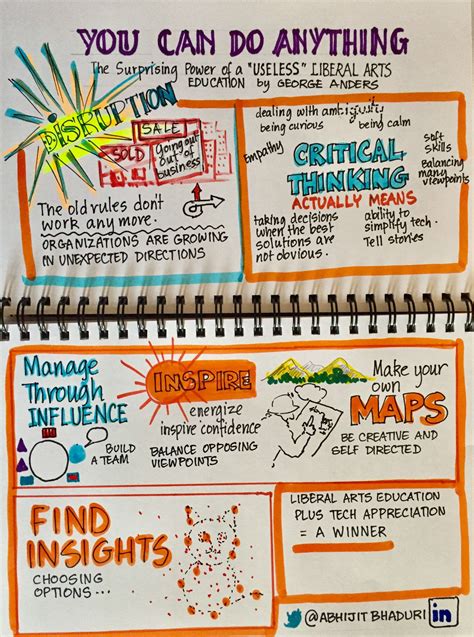 YOU CAN DO ANYTHING
The Surprising Power of a "USELESS" LIBERAL ARTS
EDUCATION by GEORGE ANDERS
DISRUPTION
SALE
SOLD
Going out
out of
business
The old rules don't
work any more.
ORGANIZATIONS ARE GROWING
IN UNEXPECTED DIRECTIONS
dealing with ambiguity
being curious
being calm
Empathy
soft
skills
Balancing
many
viewpoints
CRITICAL
THINKING
ACTUALLY MEANS
taking decisions
when the best
solutions are
not obvious.
ability to
simplify tech.
Tell stories
Manage
Through
INFLUENCE
BUILD
A TEAM
INSPIRE
energize
inspire confidence
BALANCE OPPOSING
VIEWPOINTS
Make your
own
MAPS
BE CREATIVE AND
SELF DIRECTED
FIND
INSIGHTS
CHOOSING
OPTIONS...
LIBERAL ARTS EDUCATION
PLUS TECH APPRECIATION
= A WINNER
@ABHIJITBHADURI in